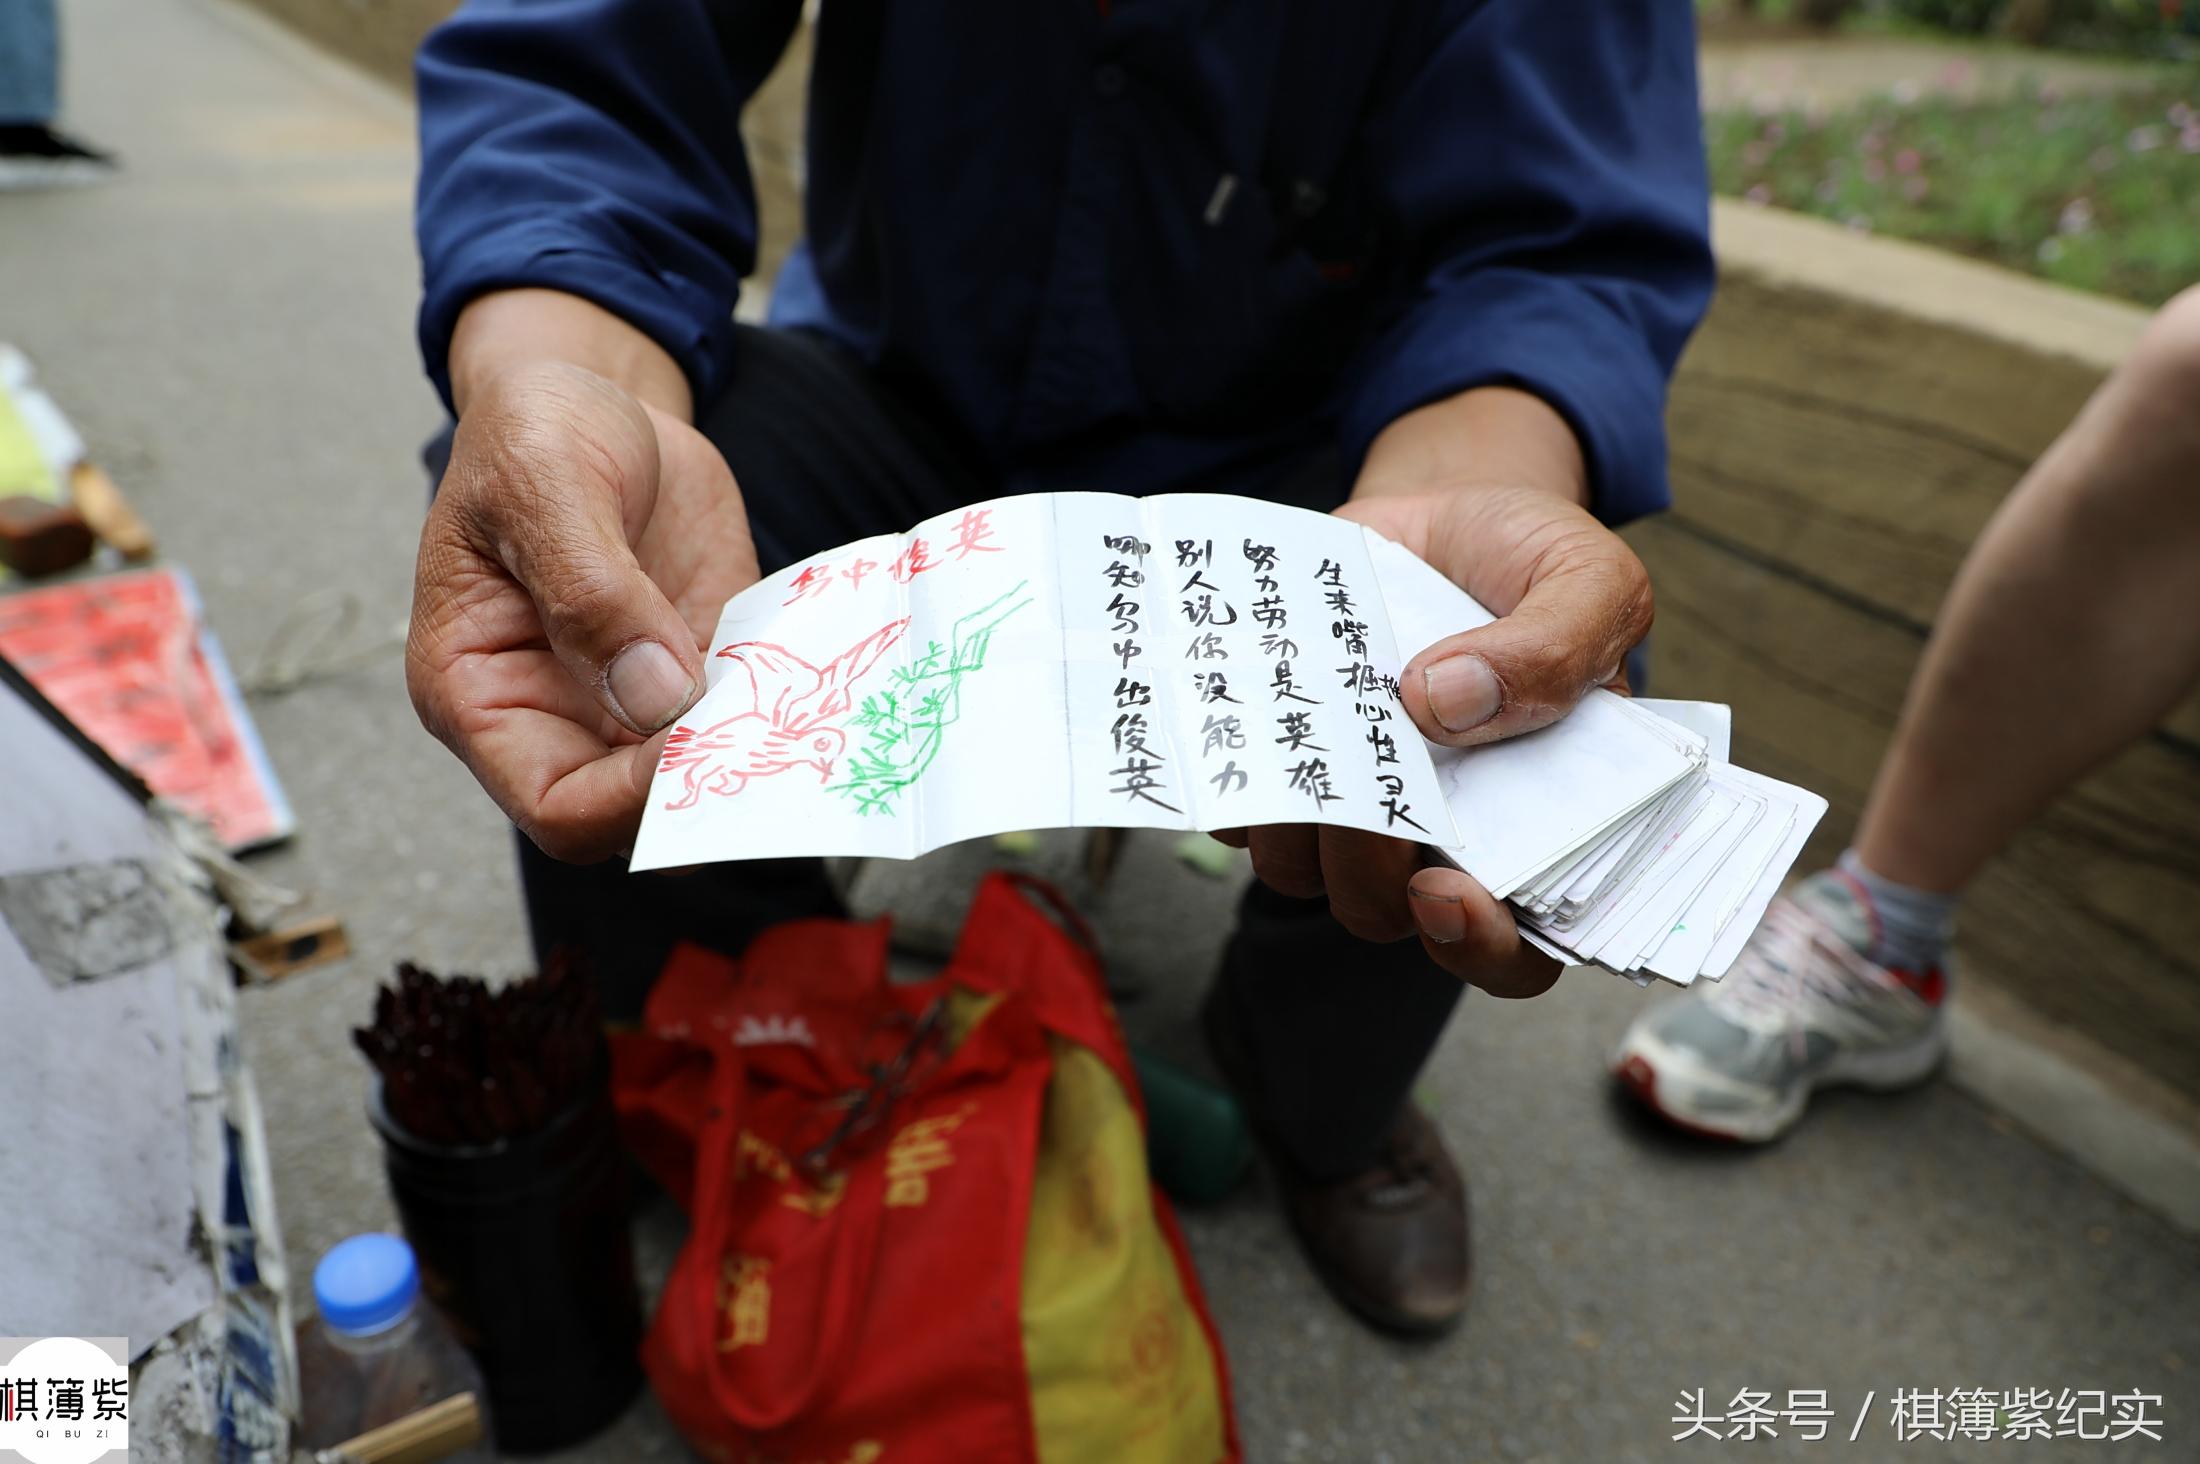 鸟中俊英
生来嘴掘心性灵
努力劳动是英雄
别人说你没能力
哪知鸟中出俊英
棋簿紫
QI BU ZI
头条号 / 棋簿紫纪实